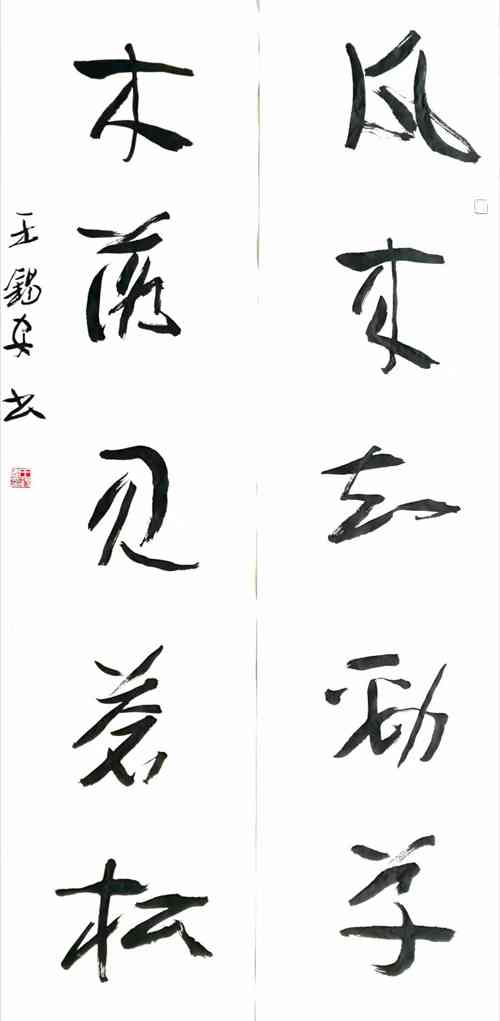 风来知劲草
木落见苍松
王錫安书